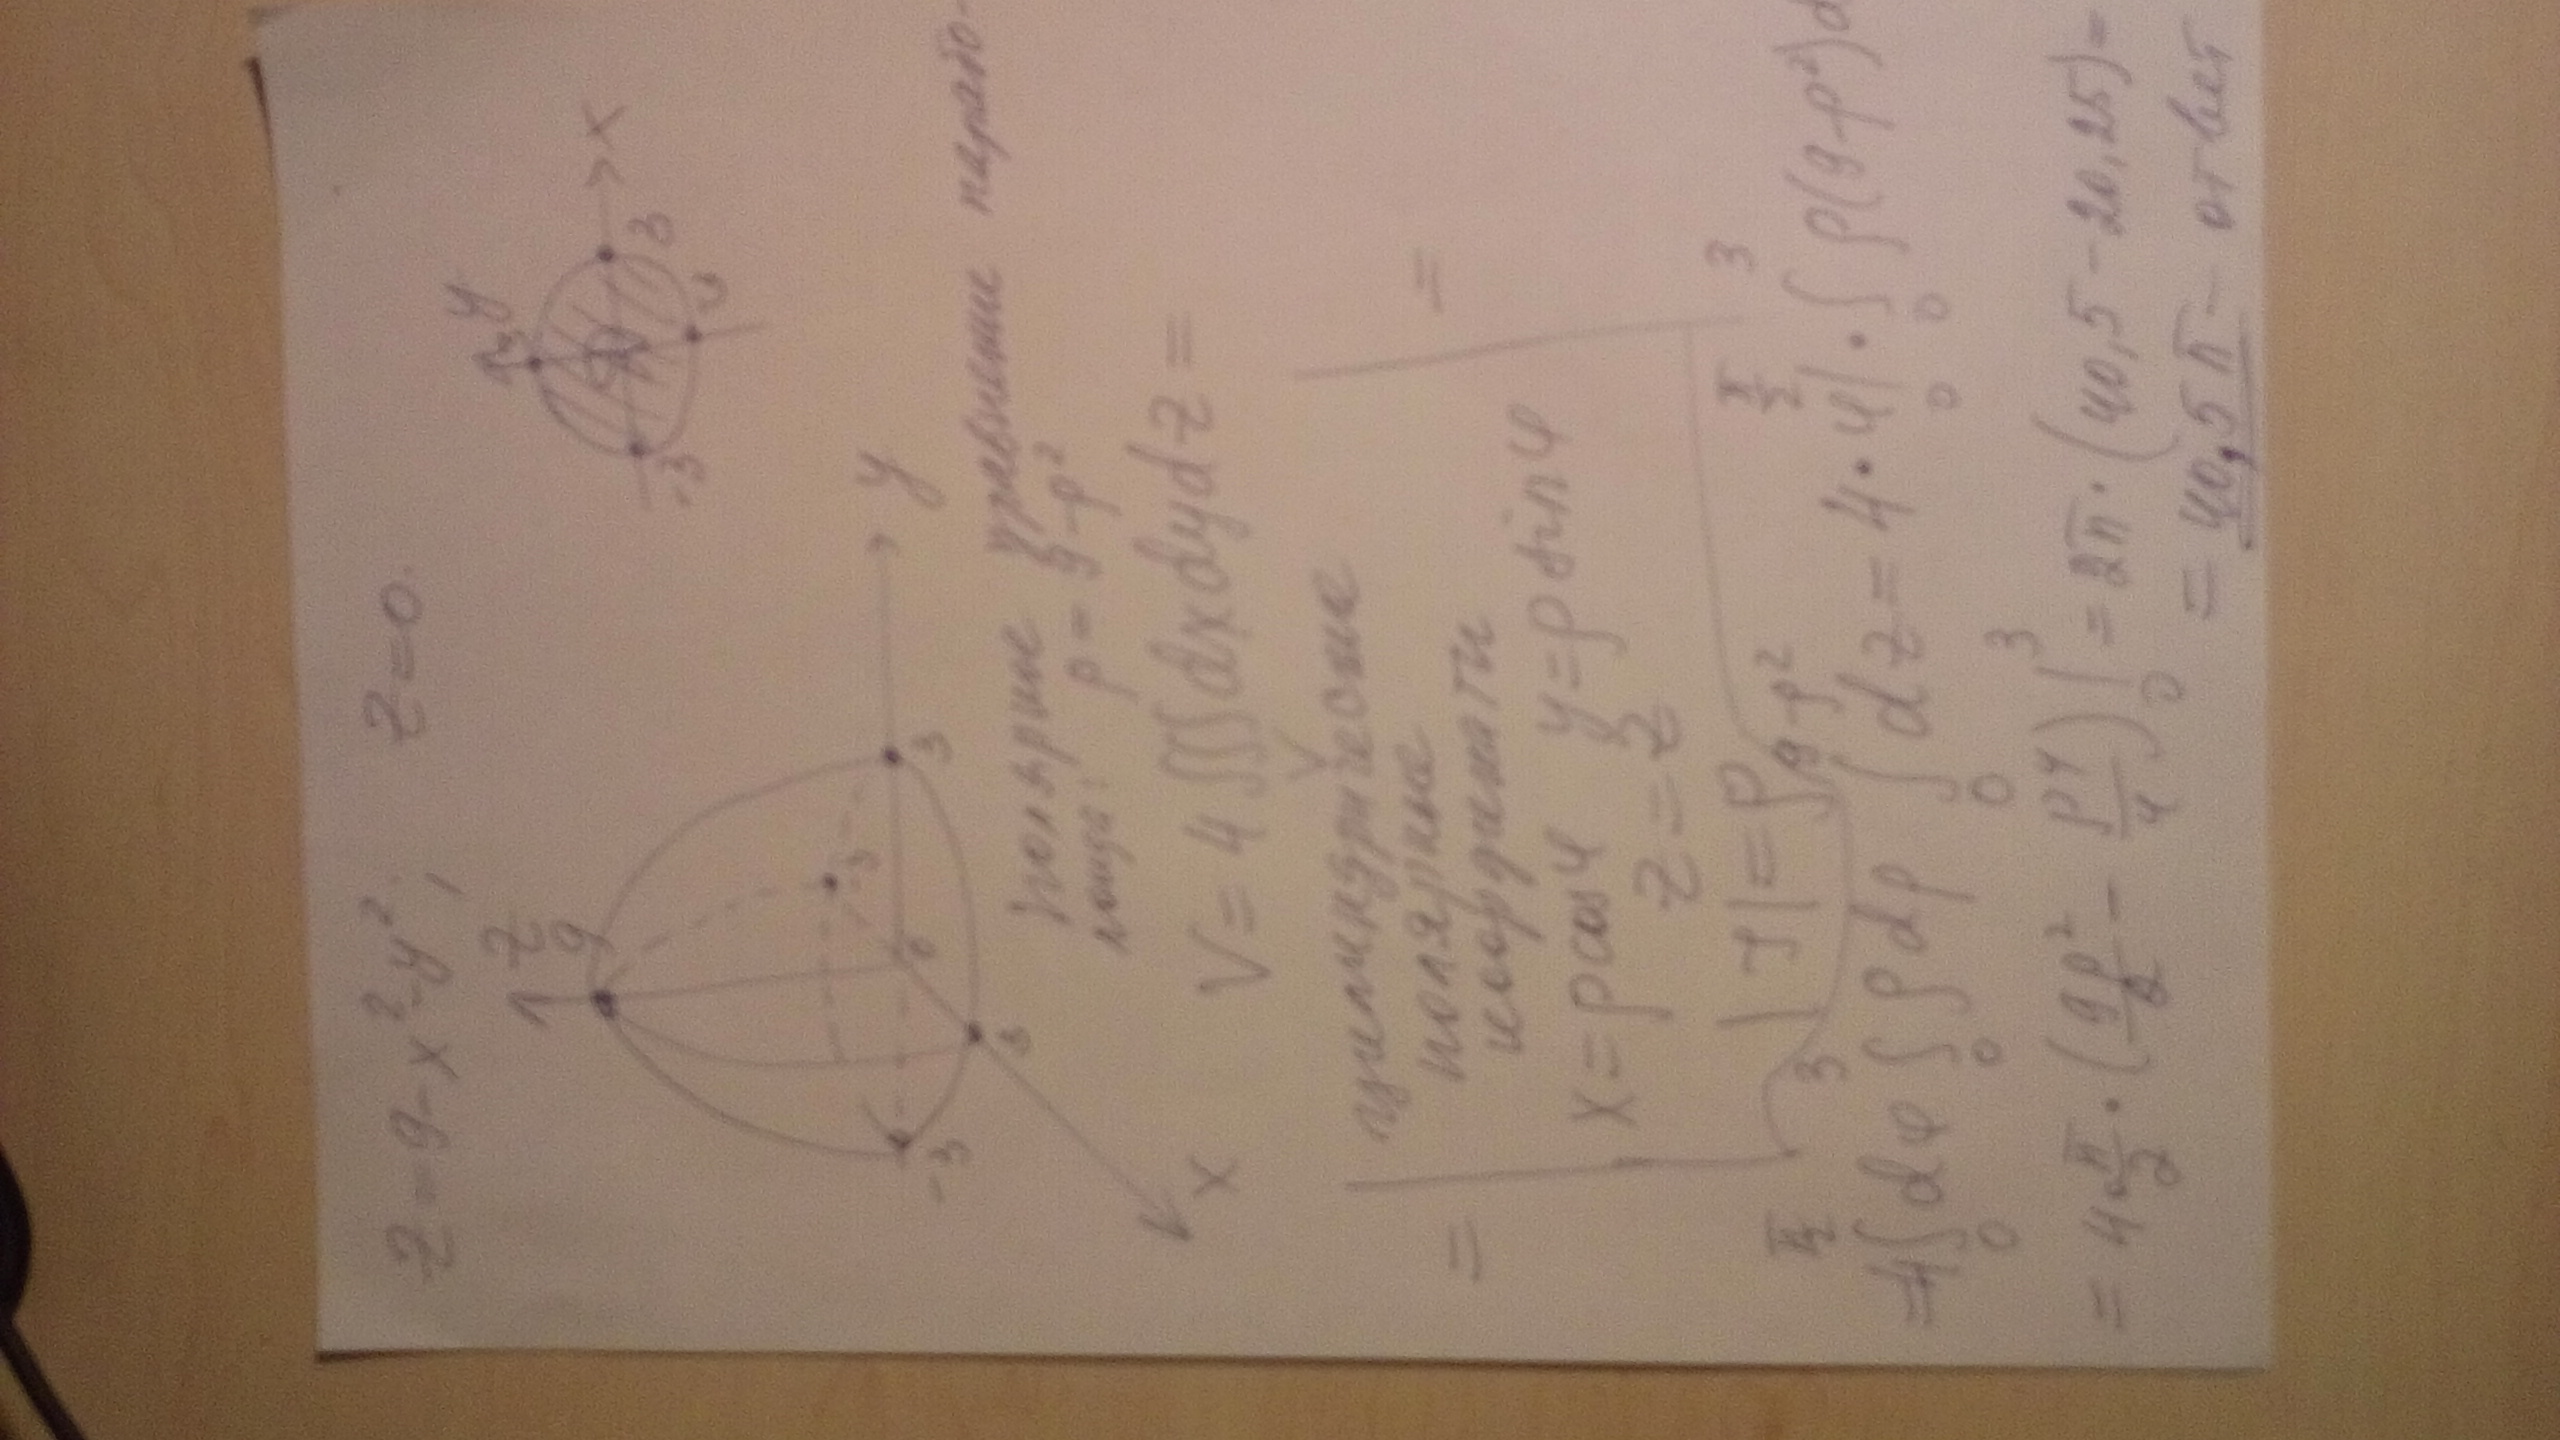 z = 9 - x² - y²; z = 0.
y
3
-3
3
x
z
9
-3
0
3
y
-3
3
x
полярные уравнение парабо-
ρ = 9 - ρ²
V = 4 ∫∫∫ dxdydz =
V
= цилиндрические =
полярные
координаты
x = ρ cos φ y = ρ sin φ
z = z
|J| = ρ
= 4 ∫₀^(π/2) dφ ∫₀³ ρ dρ ∫₀^(9-ρ²) dz = 4 · φ|₀^(π/2) · ∫₀³ ρ(9-ρ²)d
= 4 π/2 · (9ρ²/2 - ρ⁴/4)|₀³ = 2π · (40,5 - 20,25) =
= 40,5 π - ответ